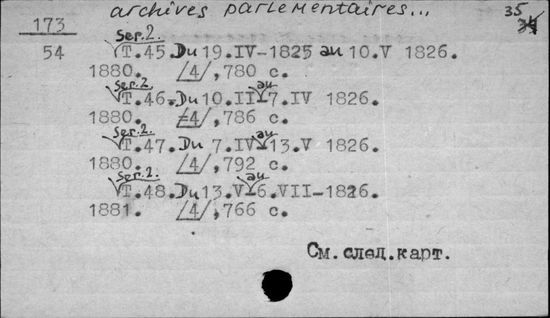 archives parlementaires... 35
173
54
Ser.2.
T.45. Du 19.IV-1825 au 10.V 1826.
1880. /4/,780 с.
Ser.2
T.46. Du 10.II au 7.IV 1826.
1880. /4/,786 с.
Ser.2.
T.47. Du 7.IV au 13.V 1826.
1880. /4/,792 с.
Ser.2.
T.48. Du 13.V au 6.VII-1826.
1881. /4/,766 с.
См.след.карт.